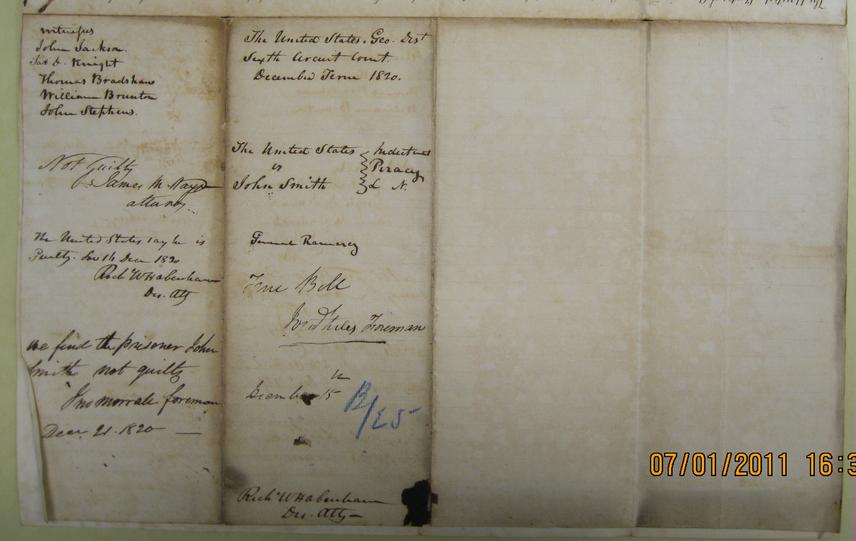 witness
John Jackson
D. Knight
Thomas Bradshaw
William Brunton
John Stephens.
Not Guilty
James M. Wayne
attorney
The United States say he is
Guilty. Sav 14 Decr 1820
Richd W Habersham
Dis. Atty
We find the prisoner John
Smith not guilty
Jno morrall foreman
Decr 21. 1820 —
The United States. Geo. Dist
Sixth Circuit Court.
December Term 1820.
The United States
vs
John Smith
Indictment
Piracy
& N.
True Bill
Foreman
December 15th
B/25
Richd W Habersham
Dis. Atty —
07/01/2011 16:3